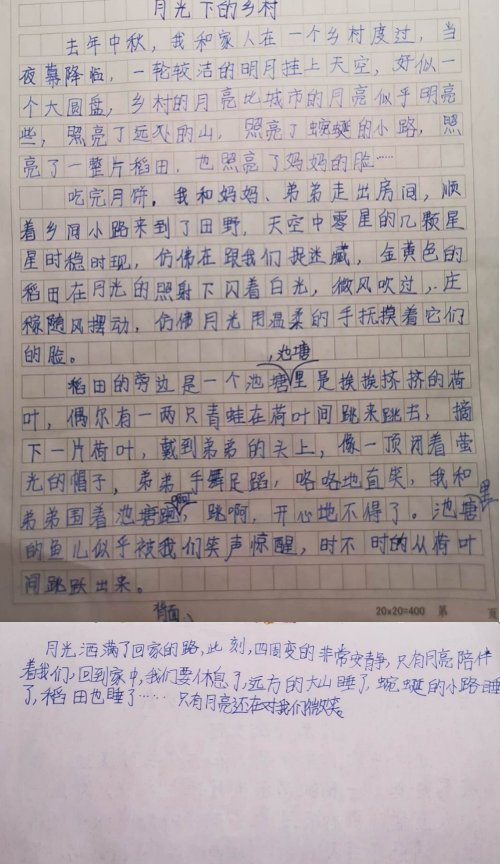 月光下的乡村
去年中秋，我和家人在一个乡村度过，当
夜幕降临，一轮较洁的明月挂上天空，好似一
个大圆盘，乡村的月亮比城市的月亮似乎明亮
些，照亮了远处的山，照亮了蜿蜒的小路，照
亮了一整片稻田，也照亮了妈妈的脸……
吃完月饼，我和妈妈、弟弟走出房间，顺
着乡间小路来到了田野，天空中零星的几颗星
星时稳时现，仿佛在跟我们捉迷藏，金黄色的
稻田在月光的照射下闪着白光，微风吹过，庄
稼随风摆动，仿佛月光用温柔的手抚摸着它们
的脸。
稻田的旁边是一个池塘，池塘里是挨挨挤挤的荷
叶，偶尔有一两只青蛙在荷叶间跳来跳去，摘
下一片荷叶，戴到弟弟的头上，像一顶闭着萤
光的帽子，弟弟手舞足蹈，咯咯地直笑，我和
弟弟围着池塘跑啊，跳啊，开心地不得了。池塘里
的鱼儿似乎被我们笑声惊醒，时不时的从荷叶
间跳跃出来。
背面、
20×20=400 第 页
月光洒满了回家的路，此刻，四周变的非常安静，只有月亮陪伴
着我们，回到家中，我们要休息了，远方的大山睡了，蜿蜒的小路睡
了，稻田也睡了…… 只有月亮还在对我们微笑。